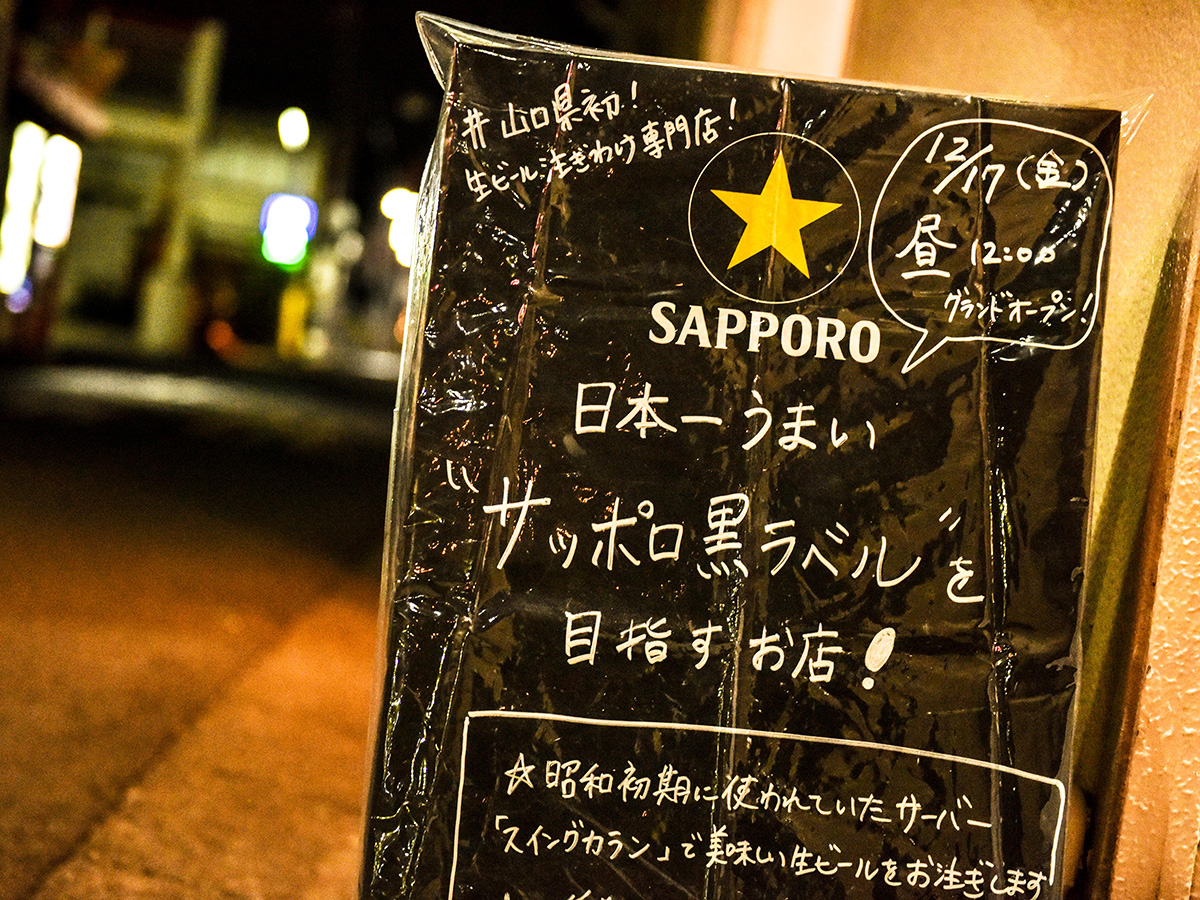 #山口県初!
生ビール注ぎわけ専門店!
12/17(金)
昼 12:00
グランドオープン!
SAPPORO
日本一うまい
"サッポロ黒ラベル"を
目指すお店!
☆昭和初期に使われていたサーバー
「スイングカラン」で美味しい生ビールをお注ぎします